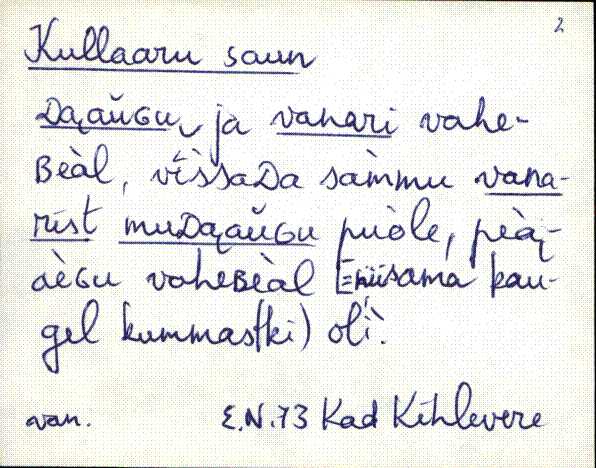 2
Kullaaru saun
Dą̀ăŭGu, ja vanari vahe-
Bèàl, vīssaDa sàmmu vana-
rist muDą̀ăŭGu pùòle, pèą̀-
àèGu vaheBèàl Enüsama kau-
gel kummast(ki) olì.
van. E.N.73 Kad Kihlevere